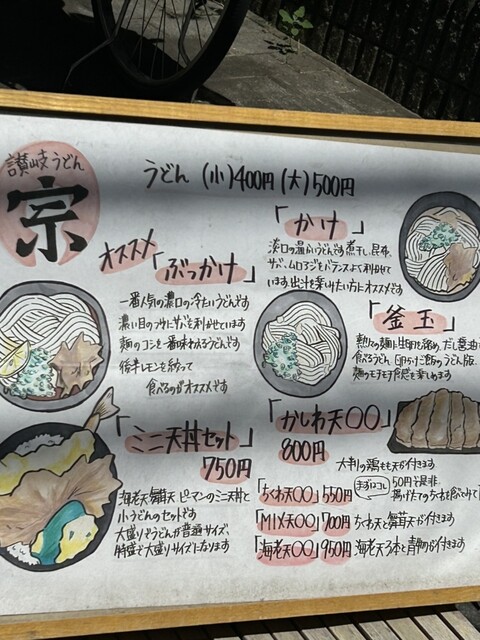 讃岐うどん
宗
うどん (小)400円 (大)500円
オススメ
「ぶっかけ」
一番人気の濃口の冷たいうどんです
濃い目のつゆとサバを利かせています
麺のコシを一番味わえるうどんです
後半レモンを絞って
食べるのがオススメです
「かけ」
淡口の温かいうどんです 煮干し、昆布、
サバ、ムロアジをバランスよく利かせて
います。出汁を楽しみたい方にオススメです
「釜玉」
熱々の麺に生卵を絡め、だし醤油で
食べるうどん、卵かけご飯のうどん版、
麺のモチモチ食感を楽しめます
「ミニ天丼セット」
750円
海老天、舞茸天、ピーマンのミニ天丼と
小うどんのセットです
大盛りでうどんが普通サイズ、
特盛で大盛りサイズになります
「かしわ天〇〇」
800円
大判の鶏もも天が付きます
「ちくわ天〇〇」550円
まずはコレ
50円で是非
揚げたてのちくわを食べて
「MIX天〇〇」700円 ちくわ天と舞茸天が付きます
「海老天〇〇」950円 海老天3本と青物が付きます